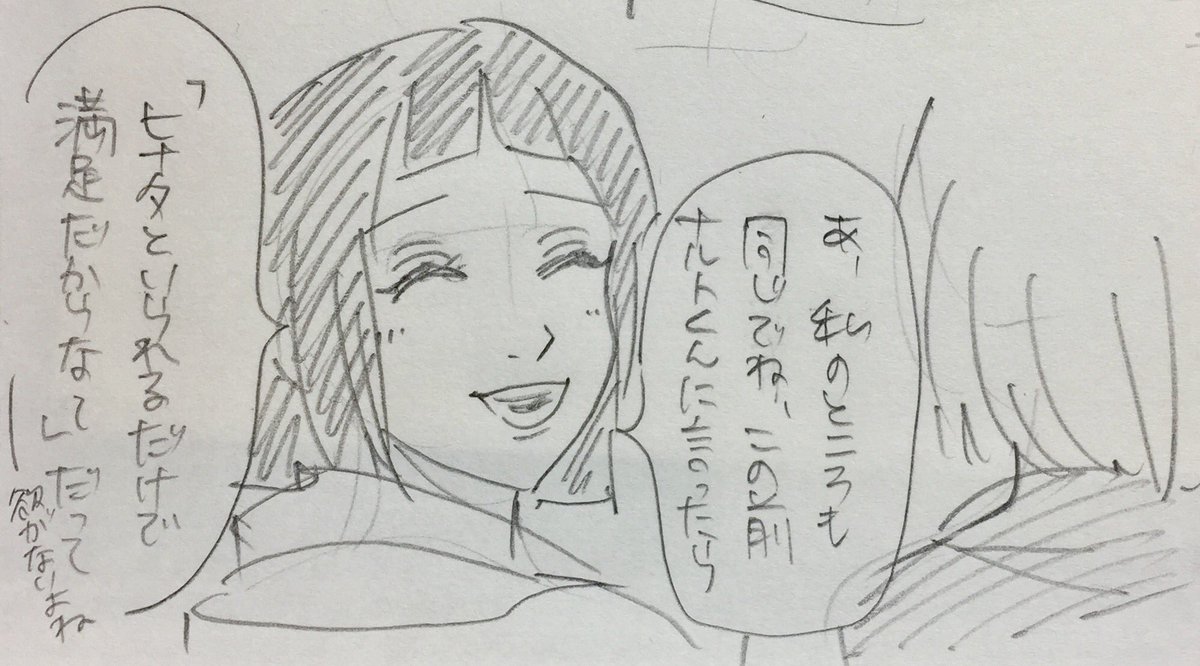 あ、私のところも
同じでね、この前
ナルトくんに言ったら
「ヒナタといられるだけで
満足だからなって」だって
欲がないよね